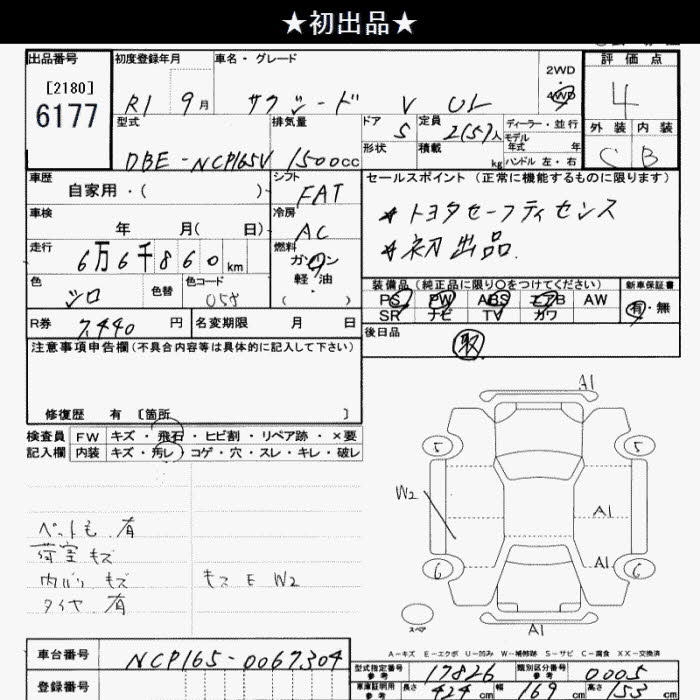 ★初出品★
出品番号 初度登録年月 車名・グレード 2WD 4WD 評価点
[2180]
6177
R1 9月 サクシード V UL 4
型式 排気量 ドア 定員 ディーラー・並行 外装 内装
DBE-NCP165V 1500cc 5 2(5)人 モデル 年式 年 C B
形状 積載 kg ハンドル 左・右
車歴 シフト セールスポイント(正常に機能するものに限ります)
自家用・( ) FAT
車検 冷房 ★トヨタセーフティセンス
年 月( 日) AC ★初出品
走行 燃料
6万6千860km ガソリン
軽・油
( )
色 色替 色コード 装備品(純正品に限り○をつけてください) 新車保証書
シロ 058 PS PW ABS エアB AW 有・無
SR ナビ TV カワ
R券 7,440円 名変期限 月 日 後日品
取
注意事項申告欄(不具合内容等は具体的に記入して下さい)
修復歴 有 [箇所 ]
検査員 FW キズ・飛石・ヒビ割・リペア跡・×要
記入欄 内装 キズ・汚レ・コゲ・穴・スレ・キレ・破レ
A1
5 5
W2
A1
A1
6 6
スペア
A1
有
荷室 キズ
キズ
タイヤ 有
キズ E W2
A-キズ E-エクボ U-凹み W-補修跡 S-サビ C-腐食 XX-交換済
車台番号 NCP165-0067304
型式指定番号 参考 17826 類別区分番号 参考 0005
登録番号
車庫証明用 参考 長さ 424cm 幅 169cm 高さ 153cm